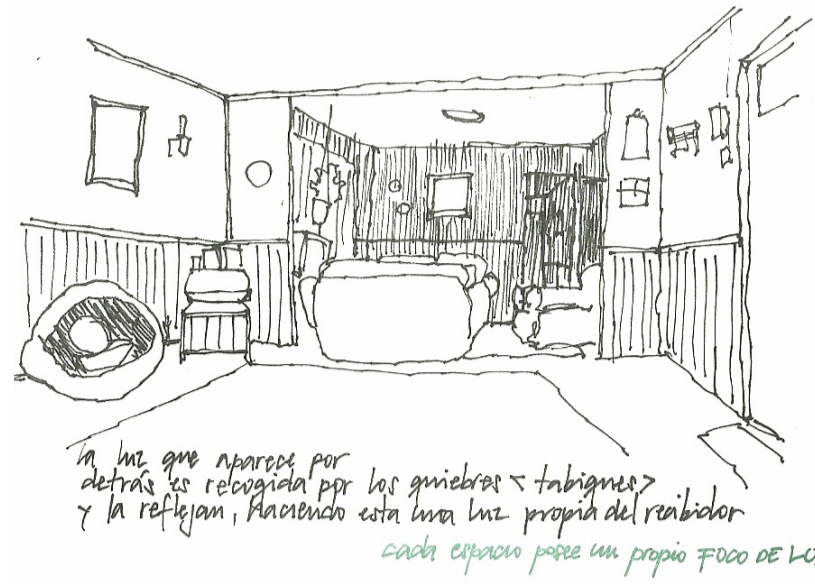 la luz que aparece por
detrás es recogida por los quiebres < tabiques >
y la reflejan, haciendo esta una luz propia del recibidor
cada espacio posee un propio FOCO DE LU